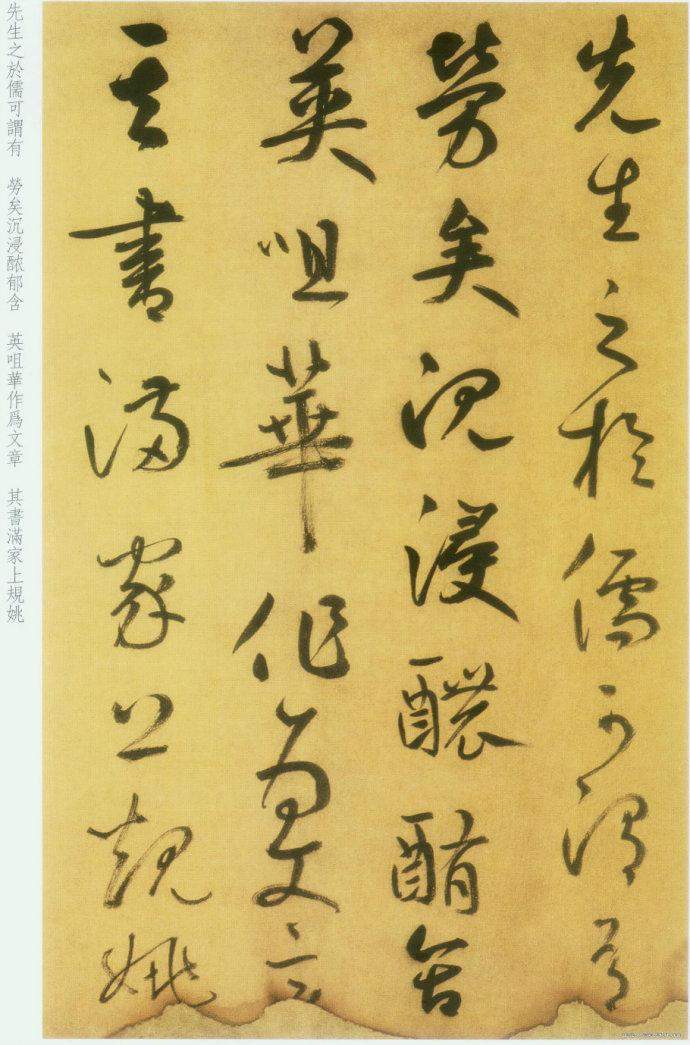 先生之於儒可謂有
勞矣沉浸醲酭含
英咀華作為文章
其書滿家上規姚
先生之於儒可謂有 勞矣沉浸𬪩郁含 英咀華作爲文章 其書滿家上規姚